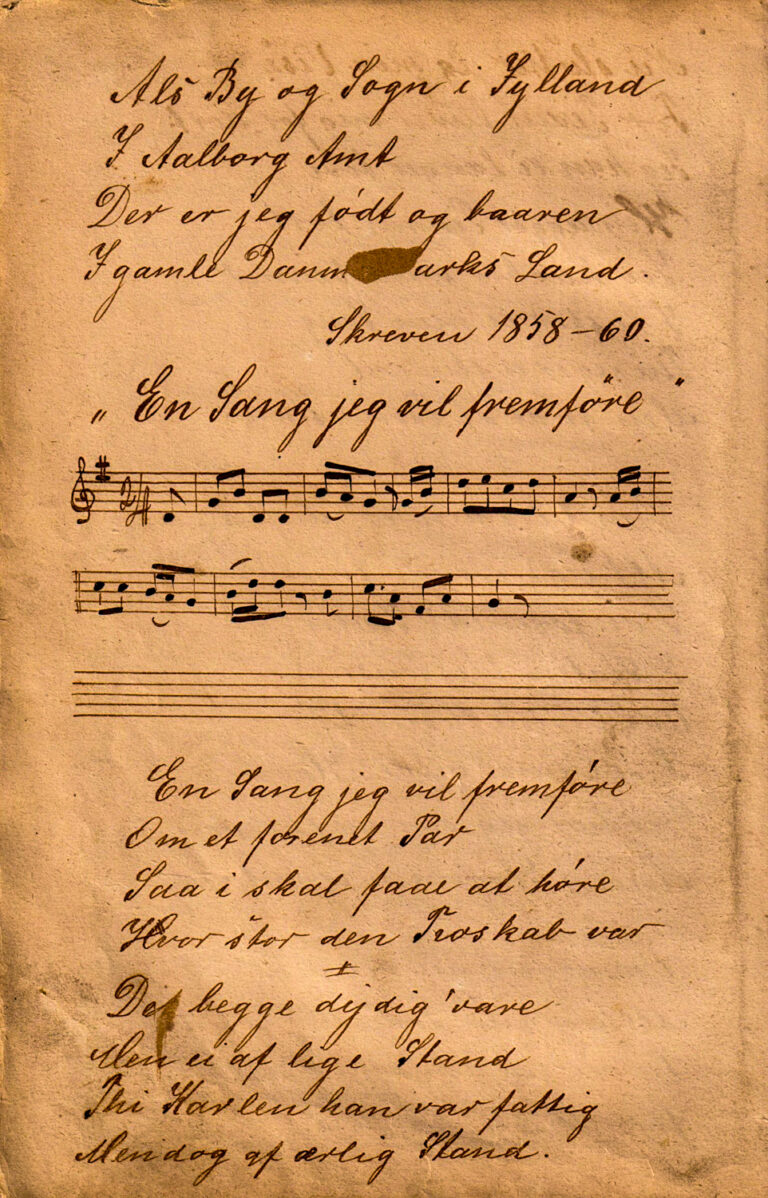 Als By og Sogn i Jylland
I Aalborg Amt
Der er jeg födt og baaren
I gamle Danmarks Land.
Skreven 1858-60.
„En Sang jeg vil fremföre"
2/4
En Sang jeg vil fremföre
Om et forenet Par
Saa i skal faae at höre
Hvor stor den Troskab var
De begge dejdig vare
Men ei af lige Stand
Thi Karlen han var fattig
Men dog af ærlig Stand.